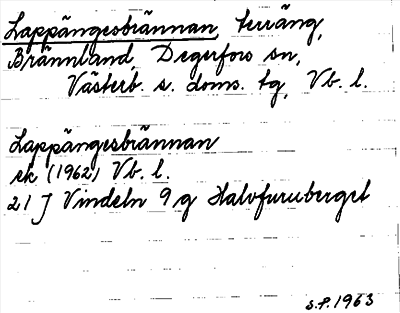 Lappängesbrännan, terräng,
Brännland, Degerfors sn,
Västerb. s. doms. tg, Vb. l.
Lappängesbrännan
ek (1962) Vb. l.
21 J Vindeln 9 g Halvfuruberget
S.P. 1963